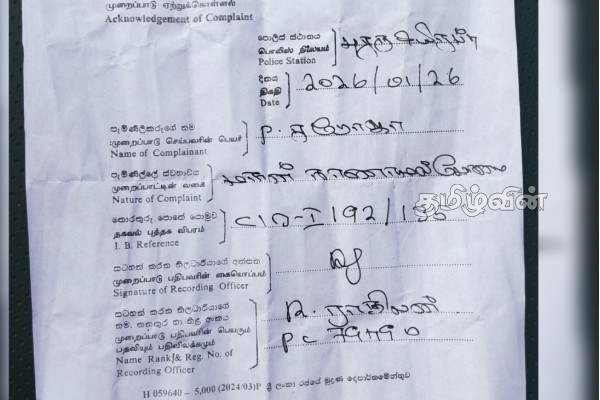 முறைப்பாடு ஏற்றுக்கொள்ளல்
Acknowledgement of Complaint
පොලිස් ස්ථානය
பொலிஸ் நிலையம்
Police Station
දිනය
திகதி
Date
2026/01/26
පැමිණිලිකරුගේ නම
முறைப்பாடு செய்பவரின் பெயர்
Name of Complainant
P.
පැමිණිල්ලේ ස්වභාවය
முறைப்பாட்டின் வகை
Nature of Complaint
தமிழ்வின்
තොරතුරු පොතේ යොමුව
தகவல் புத்தக விபரம்
I. B. Reference
CIB-I 192/
සටහන් කරන නිලධාරියාගේ අත්සන
முறைப்பாடு பதிபவரின் கையொப்பம்
Signature of Recording Officer
සටහන් කරන නිලධාරියාගේ
නම, තනතුර හා නිල අංකය
முறைப்பாடு பதிபவரின் பெயரும்
பதவியும் பதிவிலக்கமும்
Name Rank & Reg. No. of
Recording Officer
PC
H 059640 – 5,000 (2024/03)P ශ්‍රී ලංකා රජයේ මුද්‍රණ දෙපාර්තමේන්තුව